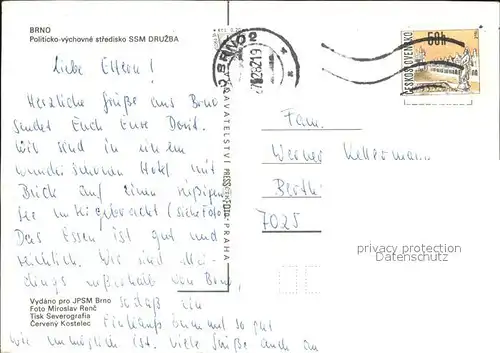 BRNO
Politicko-výchovné středisko SSM DRUŽBA
Liebe Eltern!
Herzliche Grüße aus Brno
sendet Euch Eure Dorit.
Wir sind in einem
wunderschönen Hotel mit
Blick auf einen riesigen
See untergebracht (siehe Foto)
Das Essen ist gut und
reichlich. Wir sind aller-
dings außerhalb von Brno,
sodaß ein
Einkaufsbummel so gut
wie unmöglich ist. Viele Grüße auch an
Vydáno pro JPSM Brno
Foto Miroslav Renč
Tisk Severografia
Červený Kostelec
VYDAVATELSTVÍ PRESSFOTO PRAHA
BRNO 2
ČESKOSLOVENSKO
50h
Fam.
Werner
7025
privacy protection
Datenschutz